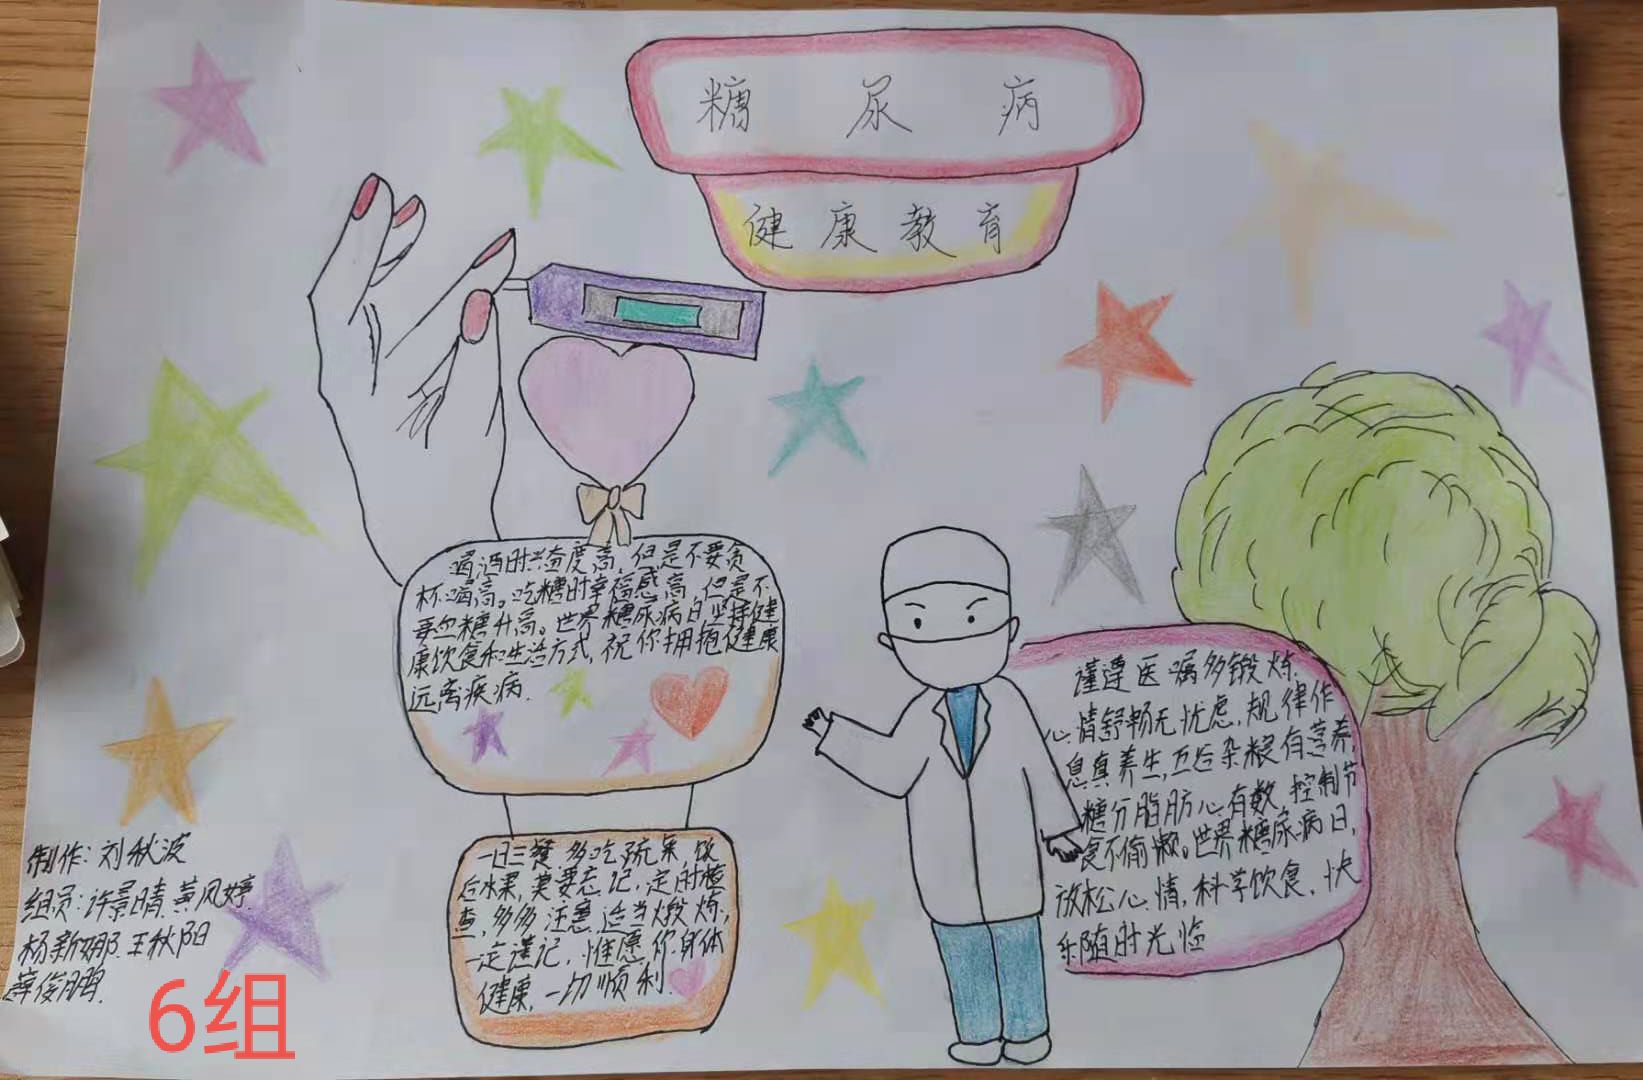 糖 尿 病
健康教育
喝酒时兴奋度高,但是不要贪
杯喝高。吃糖时幸福感高,但是不
要血糖升高。世界糖尿病日坚持健
康饮食和生活方式,祝你拥抱健康
远离疾病.
谨遵医嘱多锻炼,
心情舒畅无忧虑,规律作
息真养生,五谷杂粮有营养,
糖分脂肪心有数,控制节
食不偷懒。世界糖尿病日,
放松心情,科学饮食,快
乐随时光临
一日三餐,多吃蔬果,饭
后水果,莫要忘记,定时检
查,多多注意,适当煅炼,
一定谨记,惟愿你身体
健康,一切顺利.
制作:刘秋波
组员:许景晴.黄凤婷.
杨新娜.王秋阳
薛俊鹏.
6组